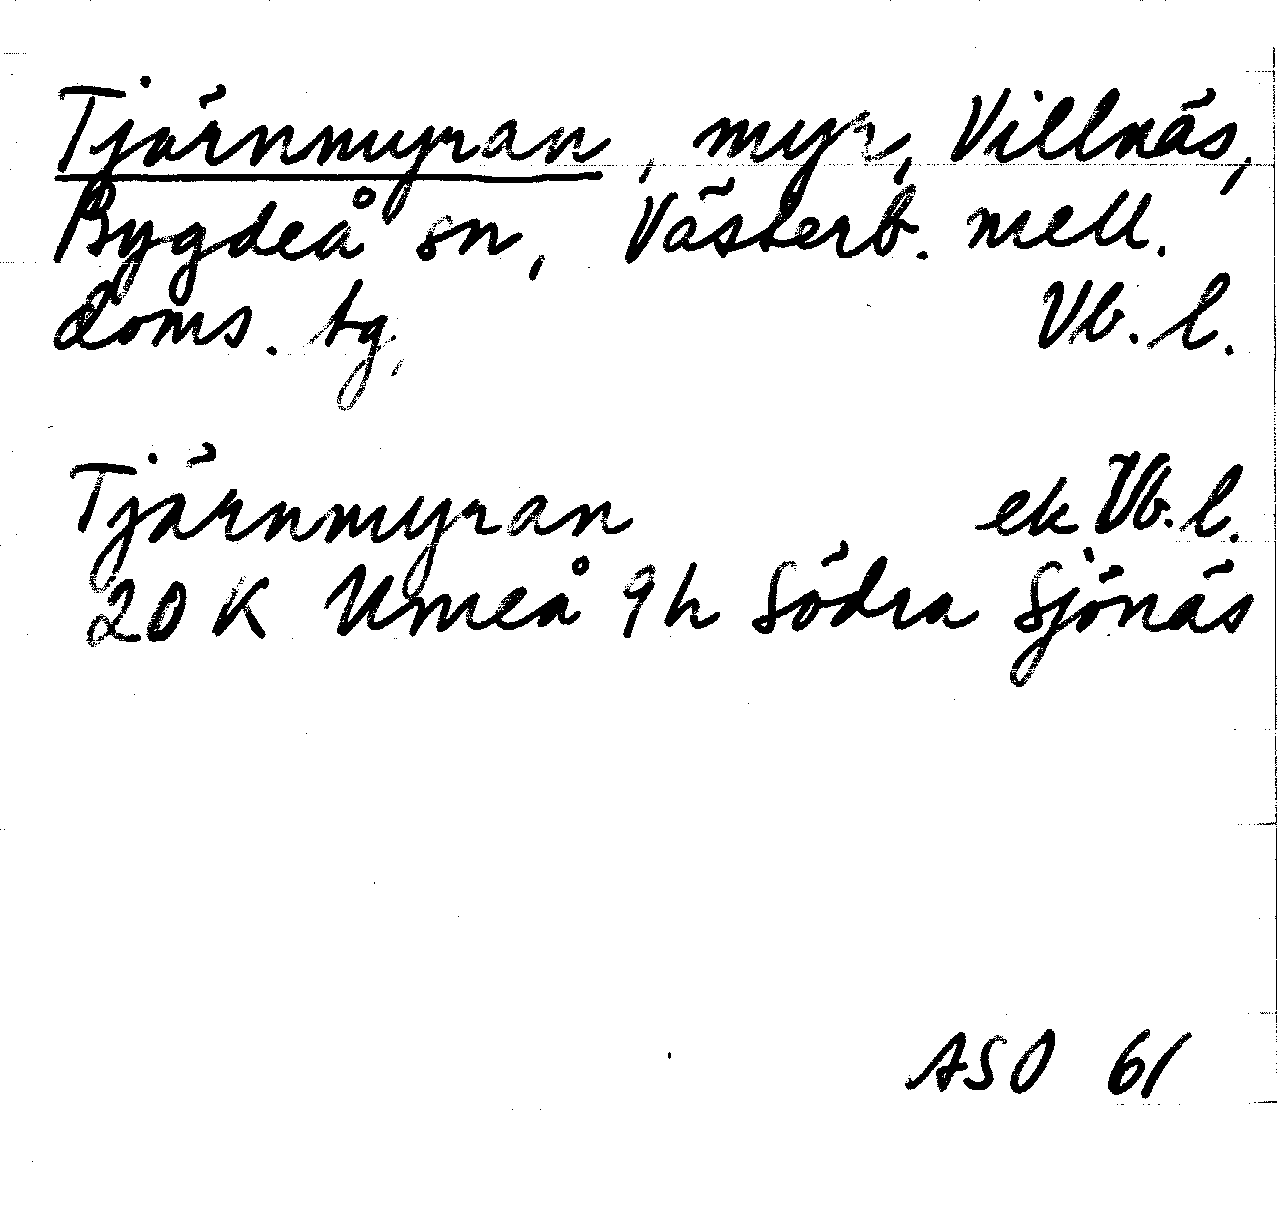 Tjärnmyran, myr, Villnäs,
Bygdeå sn, Västerb. mell.
doms. tg, Vb. l.
Tjärnmyran ek Vb. l.
20 K Umeå 9h Södra Sjönäs
ASO 61